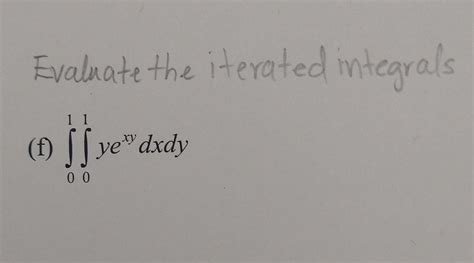 Evaluate the iterated integrals
1 1
(f) ∫∫ ye^{xy} dxdy
0 0